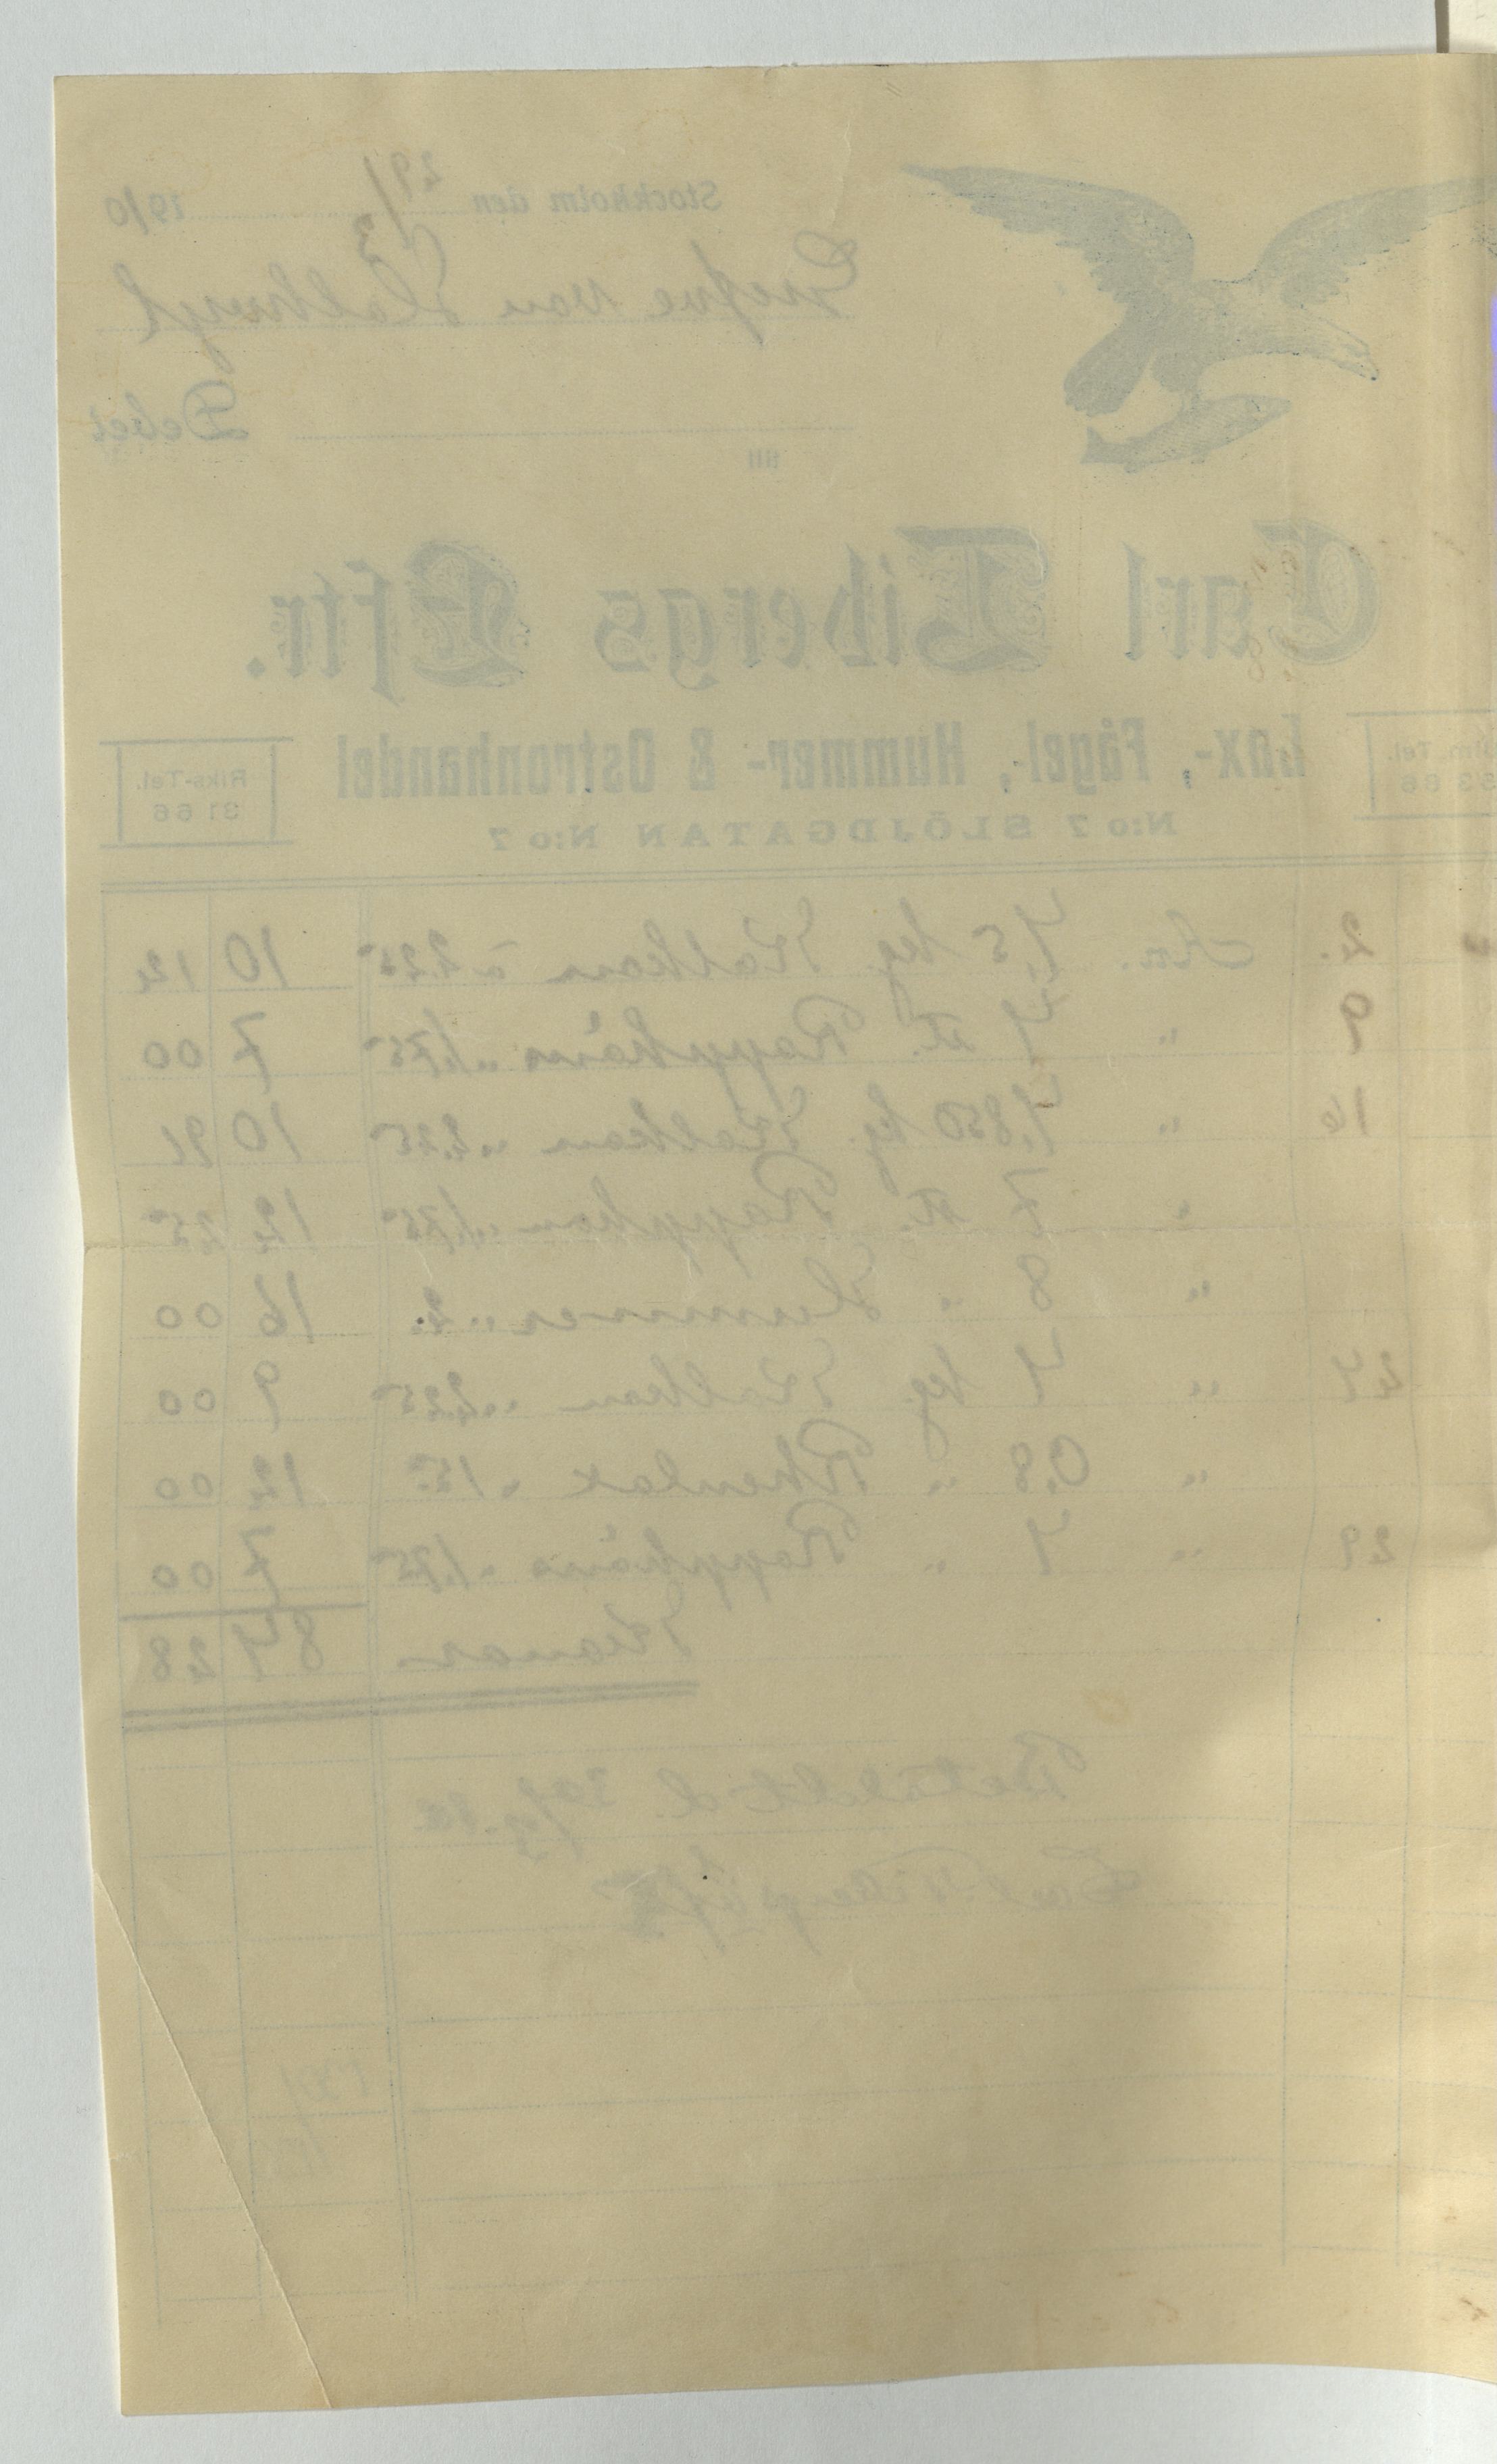 Stockholm den 29/3 1910
Grefve von Hallwyl
Debet
till
Carl Tibergs Eftr.
Lax-, Fågel-, Hummer- & Ostronhandel
N:o 7 SLÖJDGATAN N:o 7
Riks-Tel. 31 66
2. An. 4,5 kg Kalkon à 2.25 10 12
9 " 4 st. Rapphöns " 1.75 7 00
16 " 4,850 kg. Kalkon " 2.25 10 91
" 7 st. Rapphöns " 1.75 12 25
" 8 " Hummer " 2. 16 00
24 " 4 kg Kalkon " 2.25 9 00
" 0,8 " Rhenlax " 15 12 00
29 " 4 " Rapphöns " 1.75 7 00
Kronor 84 28
Betalt d. 30/3 10
Carl Tibergs Eftr